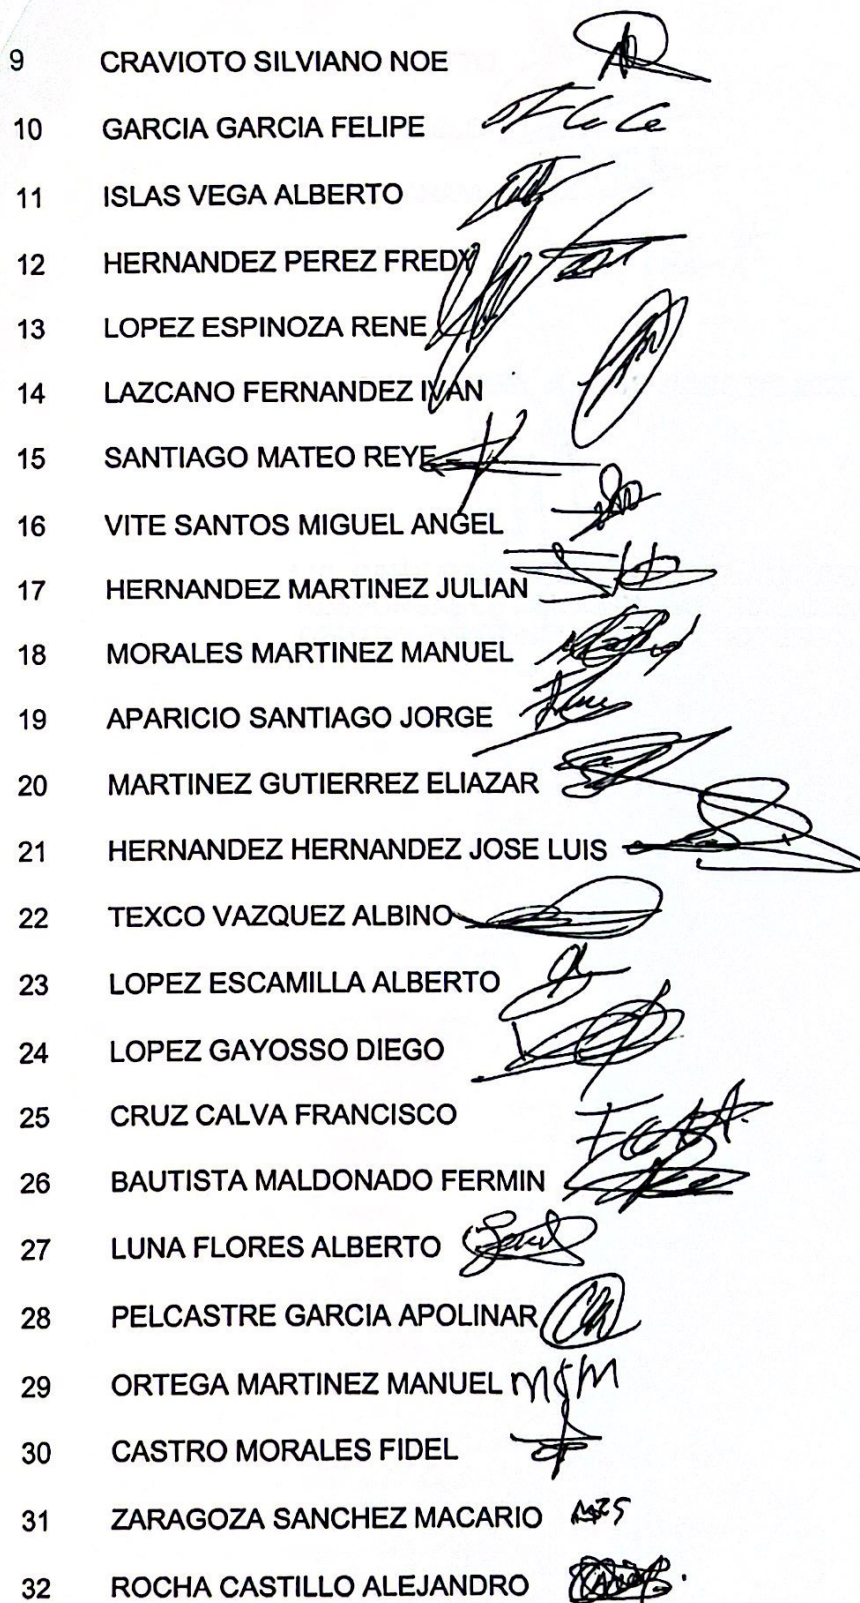 9 CRAVIOTO SILVIANO NOE
10 GARCIA GARCIA FELIPE
11 ISLAS VEGA ALBERTO
12 HERNANDEZ PEREZ FREDY
13 LOPEZ ESPINOZA RENE
14 LAZCANO FERNANDEZ IVAN
15 SANTIAGO MATEO REYE
16 VITE SANTOS MIGUEL ANGEL
17 HERNANDEZ MARTINEZ JULIAN
18 MORALES MARTINEZ MANUEL
19 APARICIO SANTIAGO JORGE
20 MARTINEZ GUTIERREZ ELIAZAR
21 HERNANDEZ HERNANDEZ JOSE LUIS
22 TEXCO VAZQUEZ ALBINO
23 LOPEZ ESCAMILLA ALBERTO
24 LOPEZ GAYOSSO DIEGO
25 CRUZ CALVA FRANCISCO
26 BAUTISTA MALDONADO FERMIN
27 LUNA FLORES ALBERTO
28 PELCASTRE GARCIA APOLINAR
29 ORTEGA MARTINEZ MANUEL
30 CASTRO MORALES FIDEL
31 ZARAGOZA SANCHEZ MACARIO MZS
32 ROCHA CASTILLO ALEJANDRO